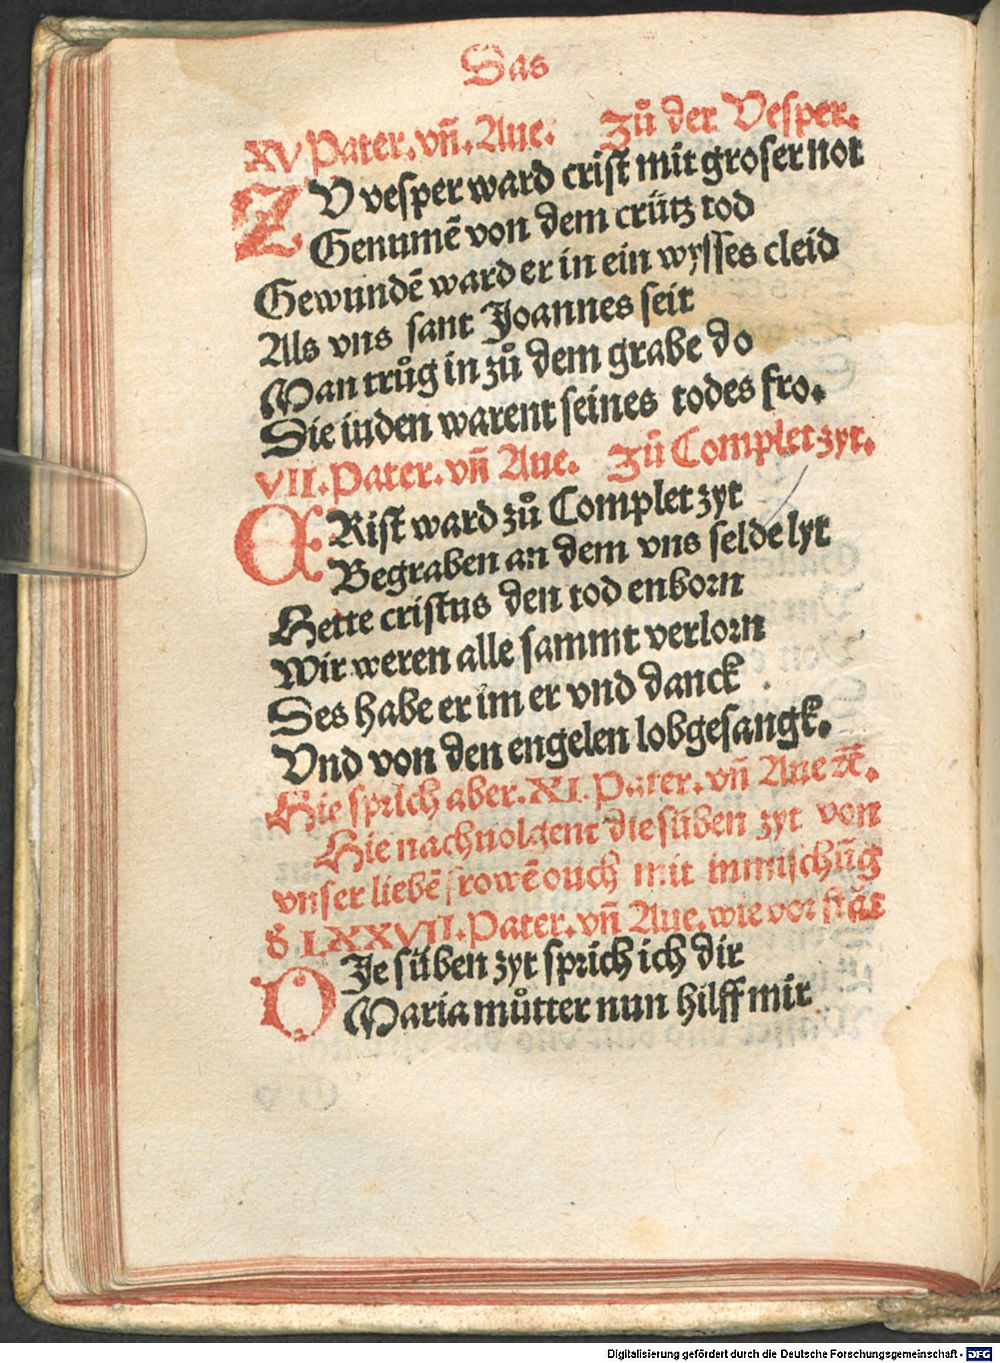 Das
XV Pater. vñ. Aue. Zů der Vesper.
ZV vesper ward crist mit groser not
Genumē von dem crütz tod
Gewundē ward er in ein wysses cleid
Als vns sant Joannes seit
Man trůg in zů dem grabe do
Die iuden warent seines todes fro.
VII. Pater. vñ Aue. Zů Complet zyt.
CRist ward zů Complet zyt
Begraben an dem vns selde lyt
Hette cristus den tod enborn
Wir weren alle sammt verlorn
Des habe er im er vnd danck
Vnd von den engelen lobgesangk.
Hie sprich aber. XI. Pater. vñ Aue ⁊c̄.
Hie nachuolgent die süben zyt von
vnser liebē frowē ouch mit inmischūg
d̕ LXXVII. Pater. vñ Aue. wie vor ståt
DJe süben zyt sprich ich dir
Maria můtter nun hilff mir
Digitalisierung gefördert durch die Deutsche Forschungsgemeinschaft - DFG